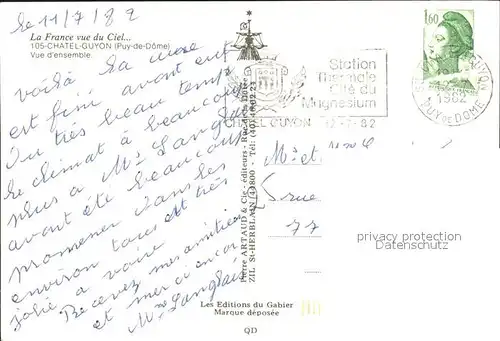 le 11/7/82
La France vue du Ciel...
105-CHATEL-GUYON (Puy-de-Dôme)
Vue d'ensemble.
voilà la cure
est fini avont eut
Du très beau temps
le climat à beaucoup
plus a Mr Langlais
avont été beaucoup
promener dans les
environ tous et très
jolie a voire
Recevez mes amitiés
et merci encore
Mme Langlais
Pierre ARTAUD & Cie - éditeurs - Rue de la
ZIL St-HERBLAIN (44)800 - Tél: (40)
Les Editions du Gabier
Marque déposée
QD
Station
Thermale
Cité du
Magnesium
CHATEL GUYON 12-7-82
1,60
1982
PUY DE DOME
Mr et Mme
rue
77
privacy protection
Datenschutz